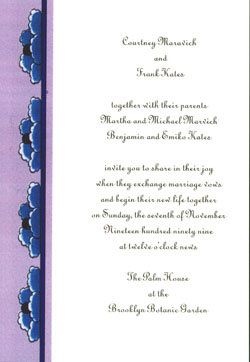 Courtney Maravich
and
Frank Kates
together with their parents
Martha and Michael Marvich
Benjamin and Emiko Kates
invite you to share in their joy
when they exchange marriage vows
and begin their new life together
on Sunday, the seventh of November
Nineteen hundred ninety nine
at twelve o'clock news
The Palm House
at the
Brooklyn Botanic Garden